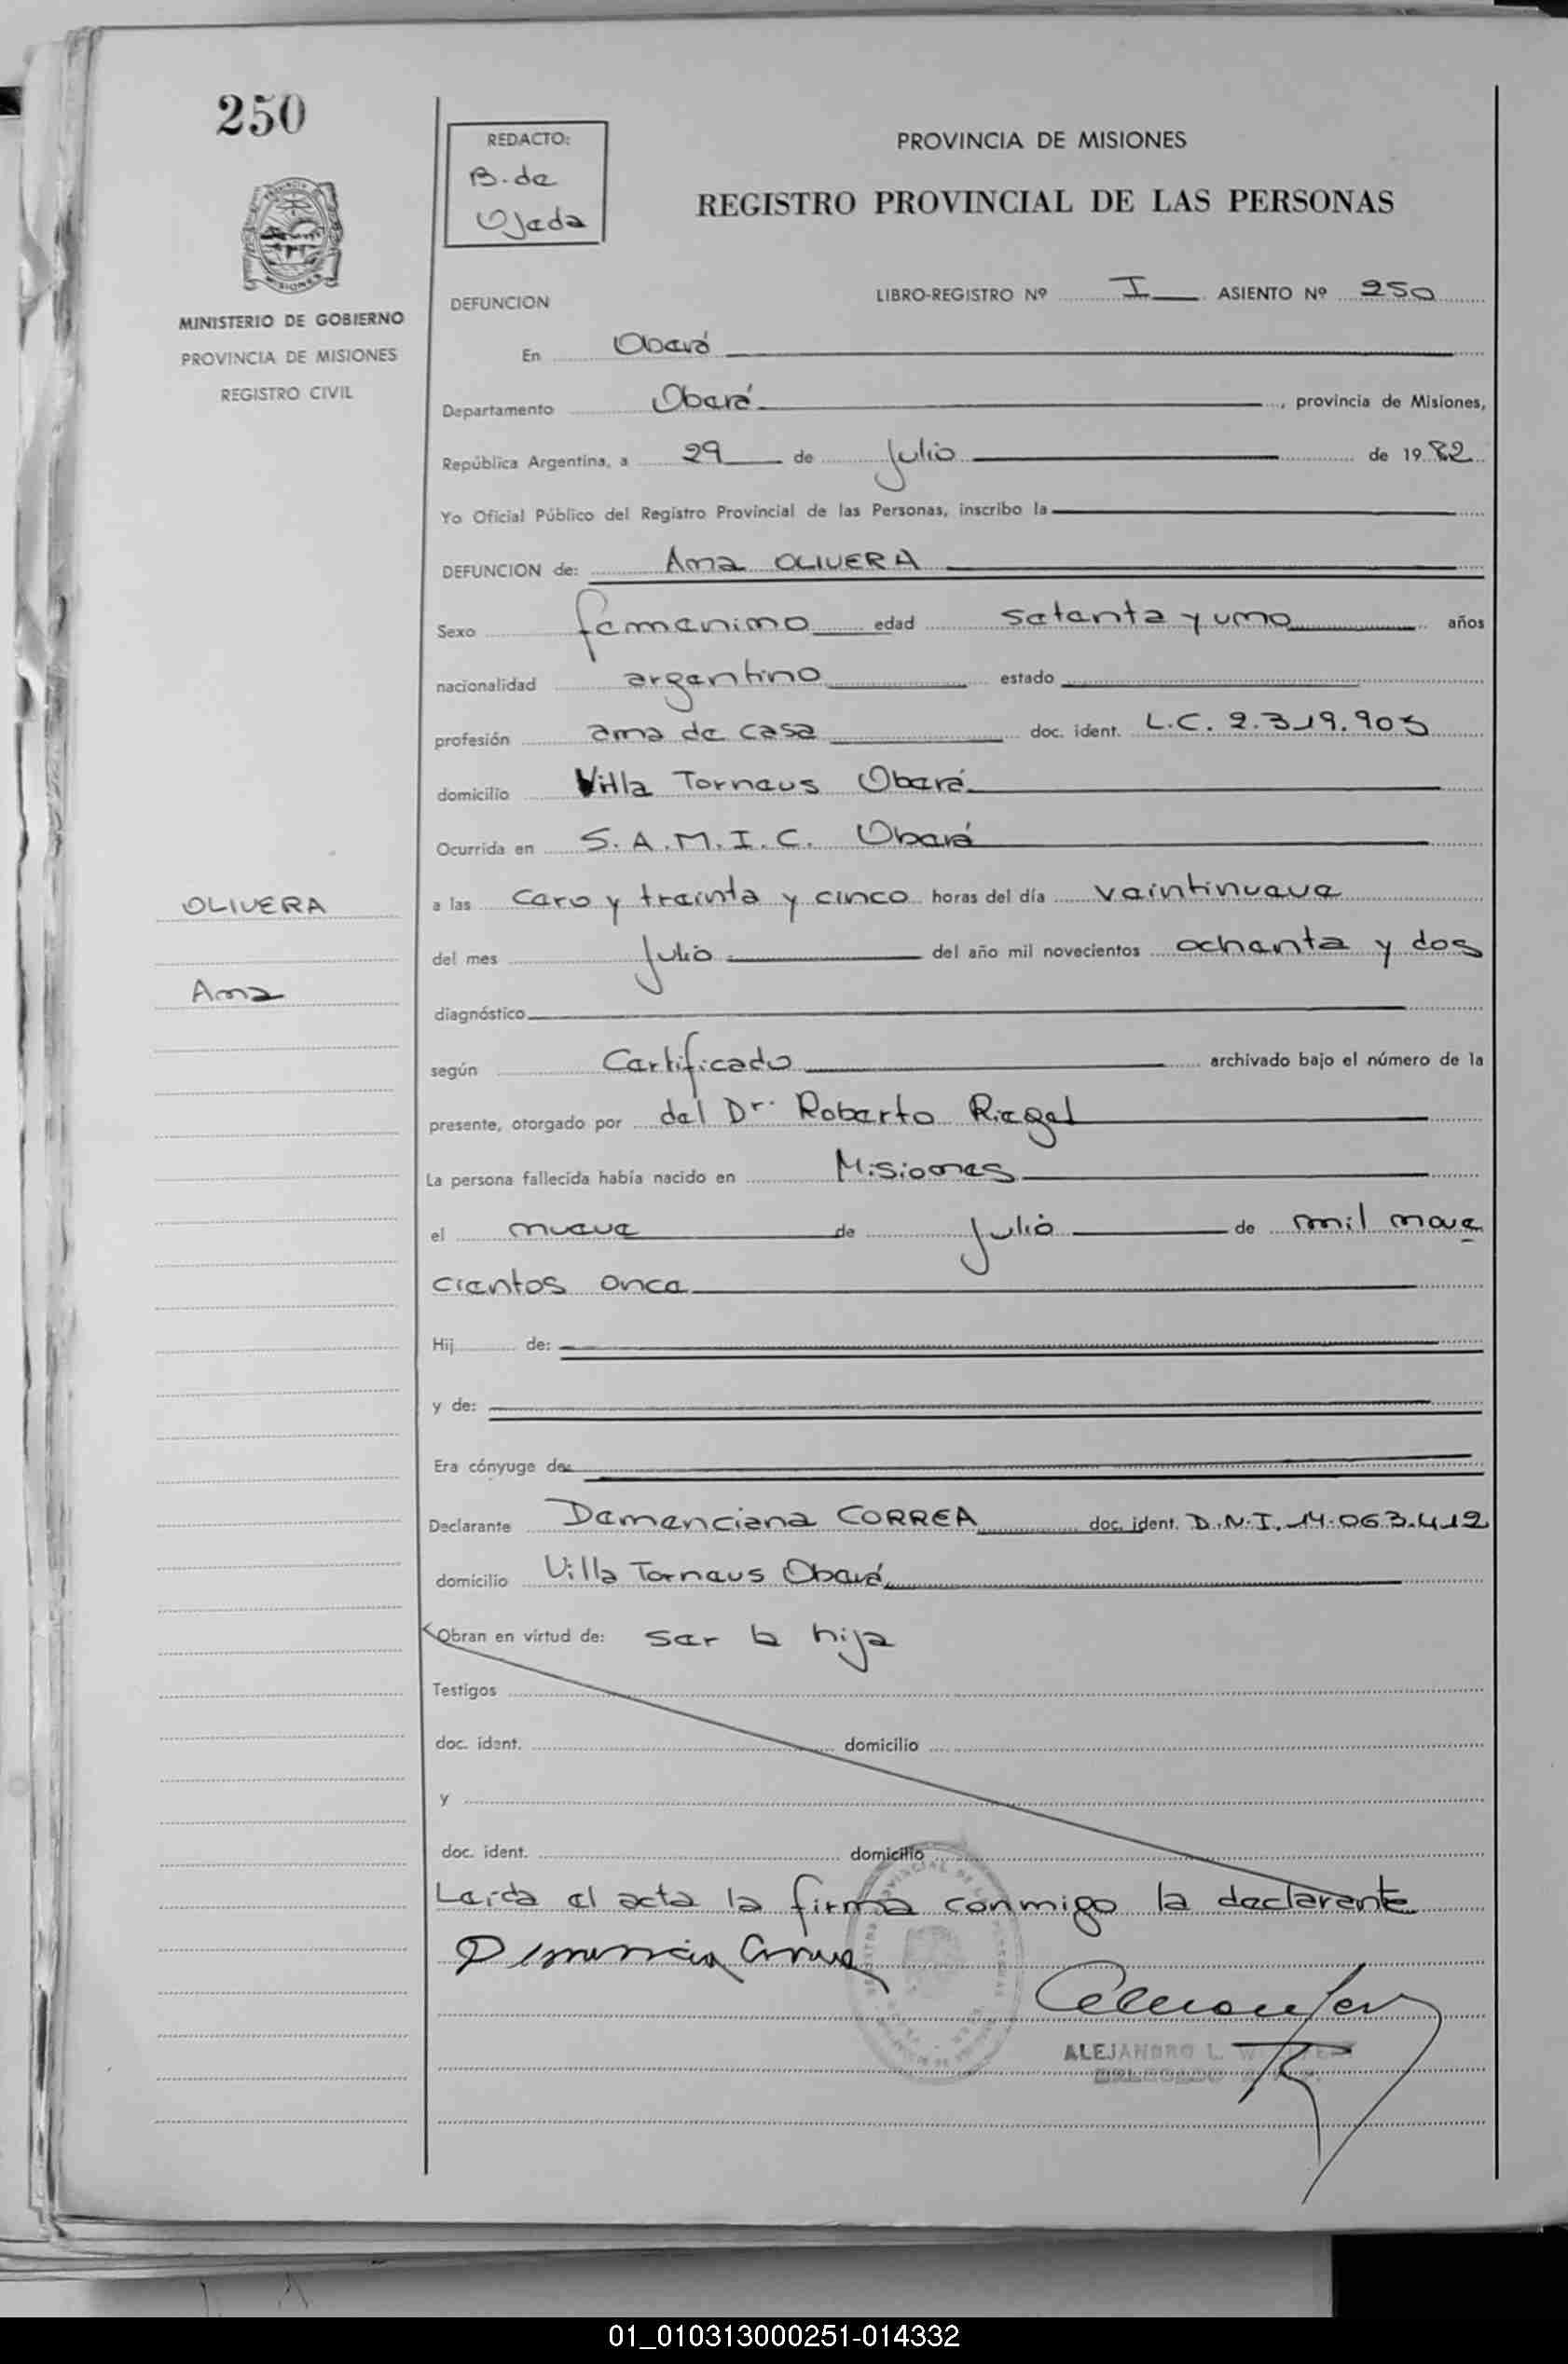 250
REDACTO:
B. de
Ojeda
PROVINCIA DE MISIONES
REGISTRO PROVINCIAL DE LAS PERSONAS
MISIONES
MINISTERIO DE GOBIERNO
PROVINCIA DE MISIONES
REGISTRO CIVIL
DEFUNCION LIBRO-REGISTRO Nº I ASIENTO Nº 250
En Oberá
Departamento Oberá, provincia de Misiones,
República Argentina, a 29 de julio de 1982
Yo Oficial Público del Registro Provincial de las Personas, inscribo la
DEFUNCION de: Ana OLIVERA
Sexo femenino edad setenta y uno años
nacionalidad argentino estado
profesión ama de casa doc. ident. L.C. 2.319.905
domicilio Villa Torneus Oberá
Ocurrida en S.A.M.I.C. Oberá
OLIVERA
Ana
a las cero y treinta y cinco horas del día veintinueve
del mes julio del año mil novecientos ochenta y dos
diagnóstico
según Certificado archivado bajo el número de la
presente, otorgado por del Dr. Roberto Riegel
La persona fallecida había nacido en Misiones
el nueve de julio de mil nove
cientos once
Hij de:
y de:
Era cónyuge de:
Declarante Demenciana CORREA doc. ident. D.N.I. 14.063.412
domicilio Villa Torneus Oberá
Obran en virtud de: ser la hija
Testigos
doc. ident. domicilio
y
doc. ident. domicilio
Leída el acta la firma conmigo la declarante
ALEJANDRO L.
01_010313000251-014332